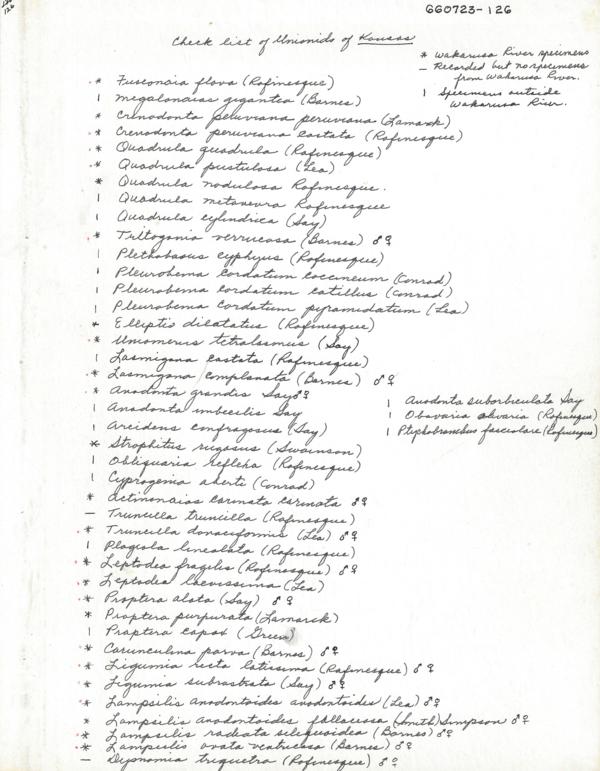 GG0723-126
Check list of Unionids of Kansas
* Wakarusa River specimens
— Recorded but no specimens
from Wakarusa River.
| Specimens outside
Wakarusa River.
* Fusconaia flava (Rafinesque)
| Megalonaias gigantea (Barnes)
* Crenodonta peruviana peruviana (Lamarck)
* Crenodonta peruviana costata (Rafinesque)
* Quadrula quadrula (Rafinesque)
* Quadrula pustulosa (Lea)
* Quadrula nodulosa Rafinesque.
| Quadrula metanevra Rafinesque
| Quadrula cylindrica (Say)
* Tritogonia verrucosa (Barnes) ♂♀
| Plethobasus cyphyus (Rafinesque)
| Pleurobema cordatum coccineum (Conrad)
| Pleurobema cordatum catillus (Conrad)
| Pleurobema cordatum pyramidatum (Lea)
* Elliptis dilatatus (Rafinesque)
* Uniomerus tetralasmus (Say)
| Lasmigona costata (Rafinesque)
* Lasmigona complanata (Barnes) ♂♀
* Anodonta grandis Say ♂♀
| Anodonta imbecilis Say
| Arcidens confragosus (Say)
* Strophitus rugosus (Swainson)
| Obliquaria reflexa (Rafinesque)
| Cyprogenia aberti (Conrad)
* Actinonaias carinata carinata ♂♀
— Truncilla truncilla (Rafinesque)
* Truncilla donaciformis (Lea) ♂♀
| Plagiola lineolata (Rafinesque)
* Leptodea fragilis (Rafinesque) ♂♀
* Leptodea laevissima (Lea)
* Proptera alata (Say) ♂♀
* Proptera purpurata (Lamarck)
| Proptera capax (Green)
* Carunculina parva (Barnes) ♂♀
* Ligumia recta latissima (Rafinesque) ♂♀
* Ligumia subrostrata (Say) ♂♀
* Lampsilis anodontoides anodontoides (Lea) ♂♀
* Lampsilis anodontoides fallaciosa (Smith) Simpson ♂♀
* Lampsilis radiata siliquoidea (Barnes) ♂♀
* Lampsilis ovata ventricosa (Barnes) ♂♀
— Dysnomia triquetra (Rafinesque) ♂♀
| Anodonta suborbiculata Say
| Obovaria olivaria (Rafinesque)
| Ptychobranchus fasciolare (Rafinesque)